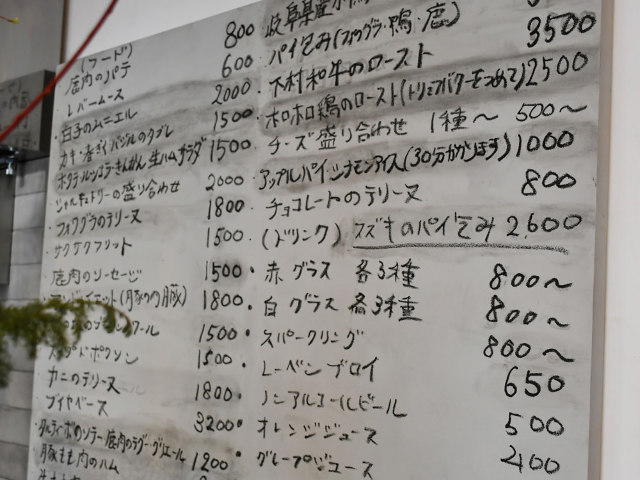 (フード)
鹿肉のパテ 800
・レバームース 600
・白子のムニエル 2000
・カキ・春ギクバジルのタブレ 1500
ホタテルッコラきんかん生ハムサラダ 1500
シャルキュトリーの盛り合わせ 2000
・フォワグラのテリーヌ 1800
・サクサクフリット 1500
・鹿肉のソーセージ 1500
(豚の) 1800
1500
1500
カニのテリーヌ 1800
・ブイヤベース 3200
鹿肉のラグー・グリエール 1200
・豚もも肉のハム
岐阜県産
・パイ包み(フォワグラ・鴨・鹿) 3500
・下村和牛のロースト 2500
・ホロホロ鶏のロースト(トリュフバターをつめて)
・チーズ盛り合わせ 1種〜 500〜
・アップルパイ シナモンアイス(30分かかります) 1000
・チョコレートのテリーヌ 800
・(ドリンク) スズキのパイ包み 2,600
・赤グラス 各3種 800〜
・白グラス 各3種 800〜
・スパークリング 800〜
・レーベンブロイ 650
・ノンアルコールビール 500
・オレンジジュース 400
・グレープジュース